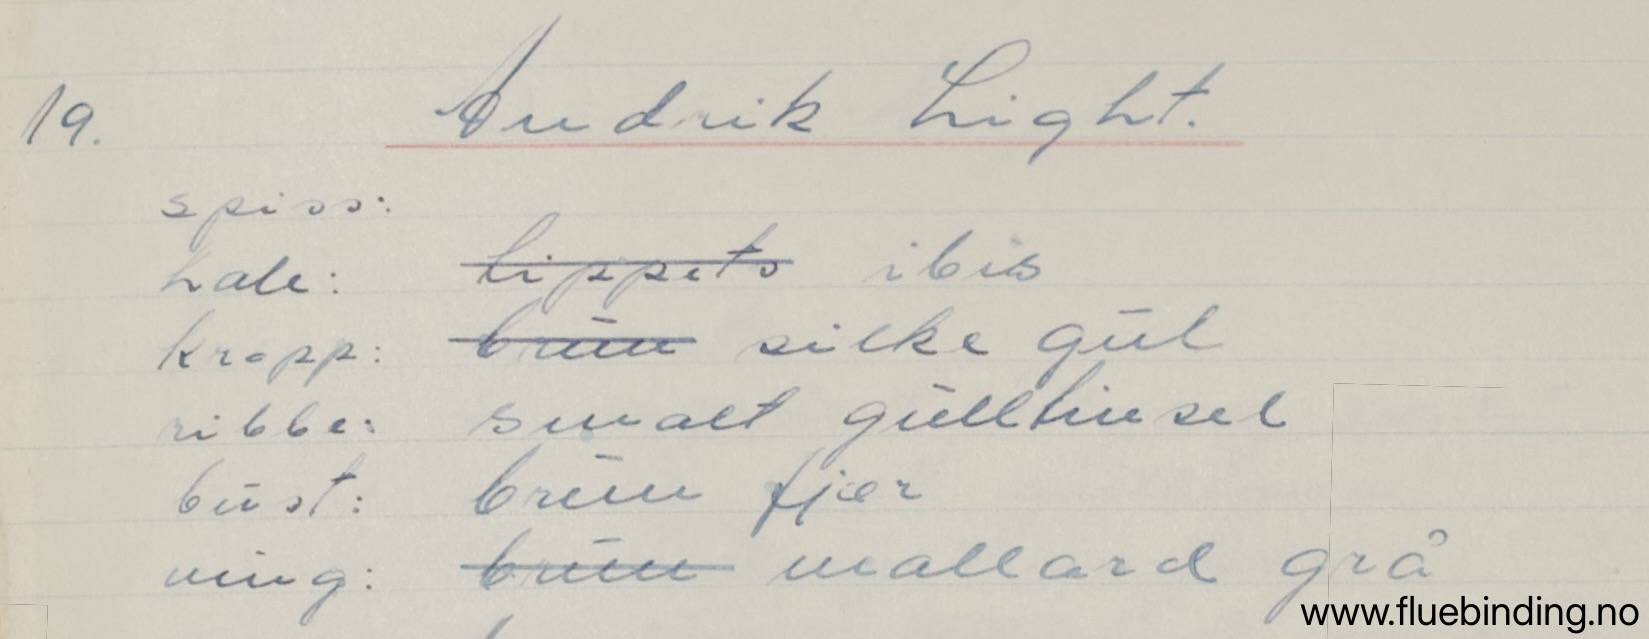 19. Andrik Light.
spiss:
hale: tippets ibis
kropp: brūn silke gūl
ribbe: smalt gūlltinsel
būst: brūn fjær
ving: brūn mallard grå
www.fluebinding.no